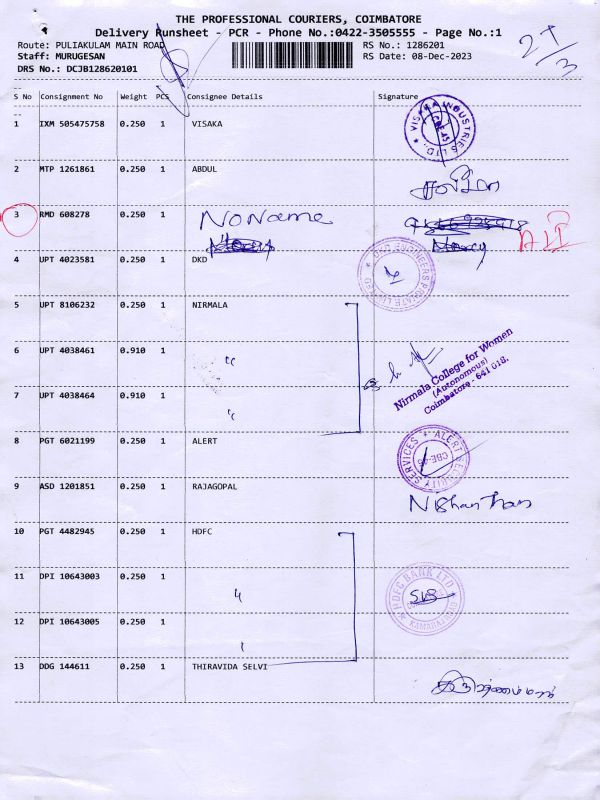 THE PROFESSIONAL COURIERS, COIMBATORE
Delivery Runsheet - PCR - Phone No.:0422-3505555 - Page No.:1
Route: PULIAKULAM MAIN ROAD RS No.: 1286201
Staff: MURUGESAN RS Date: 08-Dec-2023
DRS No.: DCJB128620101
27/3
S No Consignment No Weight PCS Consignee Details Signature
1 IXM 505475758 0.250 1 VISAKA
VISAKA INDUSTRIES LTD., CBE-45
2 MTP 1261861 0.250 1 ABDUL
3 RMD 608278 0.250 1 NoName
4 UPT 4023581 0.250 1 DKD
ENGINEERS PRIVATE LIMITED
5 UPT 8106232 0.250 1 NIRMALA
6 UPT 4038461 0.910 1 "
Nirmala College for Women
(Autonomous)
Coimbatore - 641 018.
7 UPT 4038464 0.910 1 "
8 PGT 6021199 0.250 1 ALERT
ALERT SECURITY SERVICES
9 ASD 1201851 0.250 1 RAJAGOPAL
Nishanthan
10 PGT 4482945 0.250 1 HDFC
11 DPI 10643003 0.250 1 "
HDFC BANK LTD
12 DPI 10643005 0.250 1
13 DDG 144611 0.250 1 THIRAVIDA SELVI